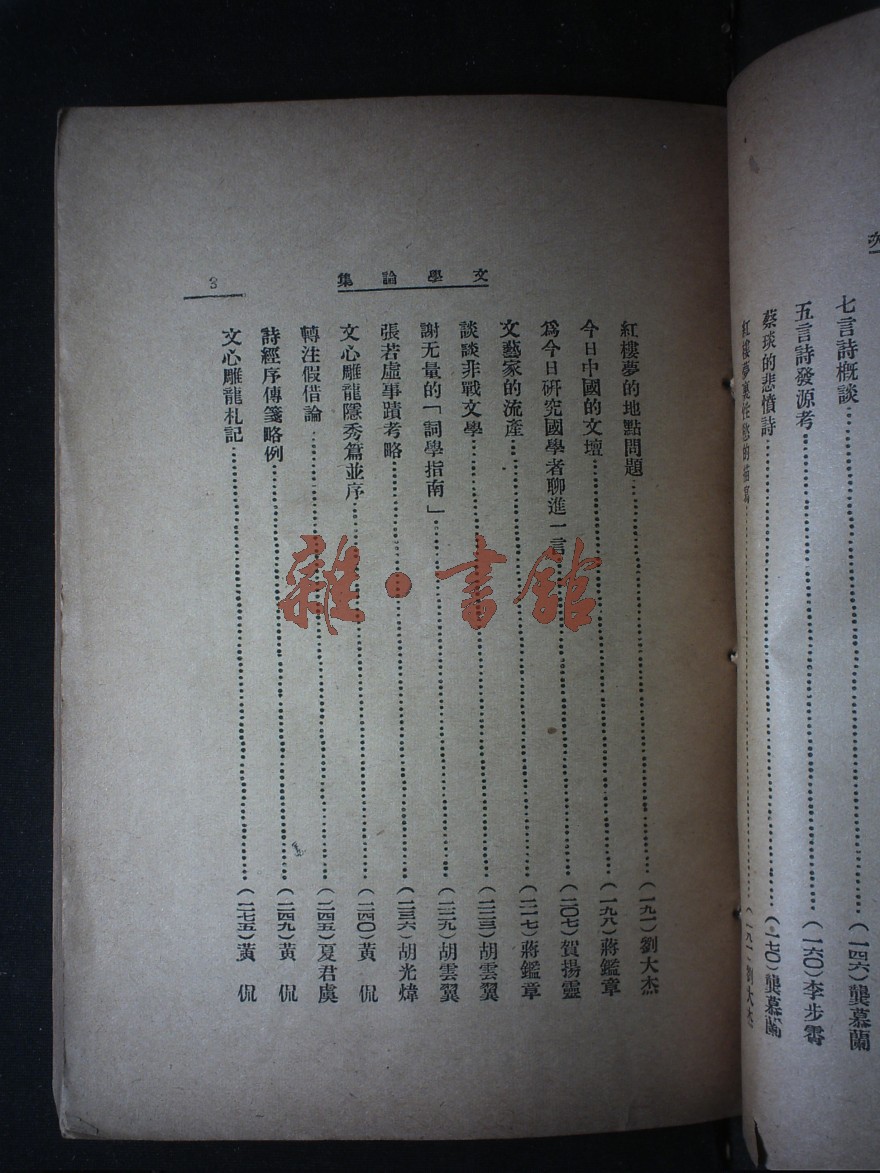 次
七言詩槪談……(一四六)龔慕蘭
五言詩發源考……(一六〇)李步霽
蔡琰的悲憤詩……(一七〇)龔慕蘭
紅樓夢裏性慾的描寫……(一八一)劉大杰
文學論集
3
紅樓夢的地點問題……(一九一)劉大杰
今日中國的文壇……(一九八)蔣鑑章
爲今日研究國學者聊進一言……(二〇七)賀揚靈
文藝家的流產……(二一七)蔣鑑章
談談非戰文學……(二二三)胡雲翼
謝无量的「詞學指南」……(二二九)胡雲翼
張若虛事蹟考略……(二三六)胡光煒
文心雕龍隱秀篇並序……(二四〇)黃侃
轉注假借論……(二四五)夏君虞
詩經序傳箋略例……(二四九)黃侃
文心雕龍札記……(二七五)黃侃
雜·書館